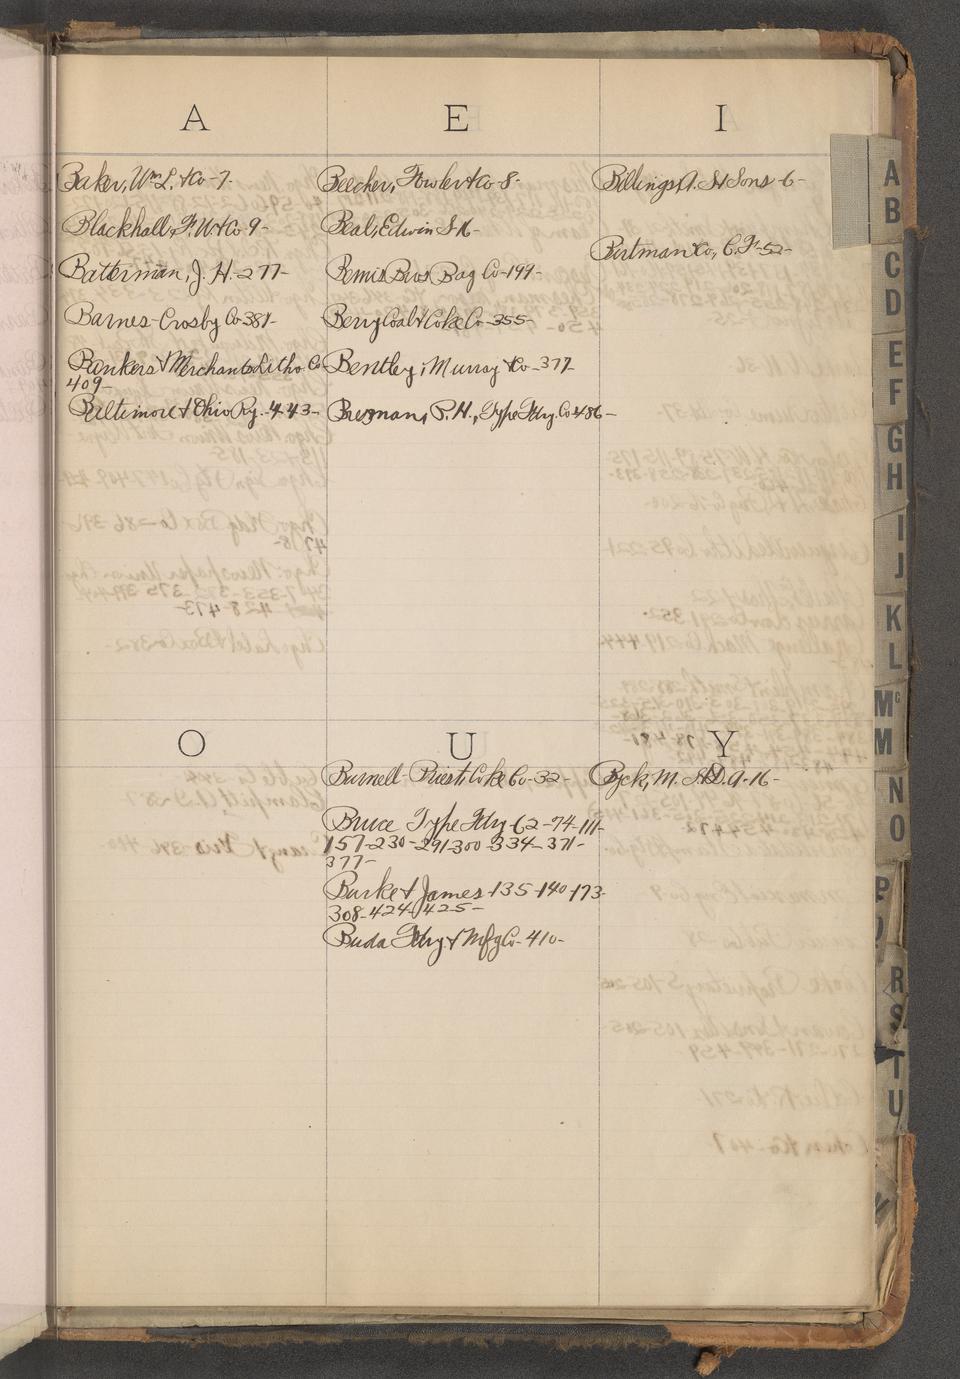 A
Baker, Wm L. & Co - 7-
Blackhall, F. W & Co 9-
Batterman, J. H. - 277-
Barnes-Crosby Co 381-
Bankers & Merchants Litho. Co-
409-
Baltimore & Ohio Ry. - 443-
E
Beecher, Fowler & Co - 8-
Beal, Edwin S 16-
Bemis Bros Bag Co - 199-
Berry Coal & Coke Co - 355-
Bentley, Murray & Co - 377
Bresnan, P. H., Type Fdry. Co 486-
I
Billings, A. H Sons - 6-
Birtman & Co, C. F - 52-
O
U
Burnell- Priest Coke Co - 32-
Bruce Type Fdry - 62-74-111-
157-230-291-300-334-371-
377-
Burke & James - 135-140-173-
308-424-425-
Buda Fdry & Mfg Co - 410-
Y
M. 16-
A
B
C
D
E
F
G
H
I
J
K
L
Mc
M
N
O
P
R
S
T
U